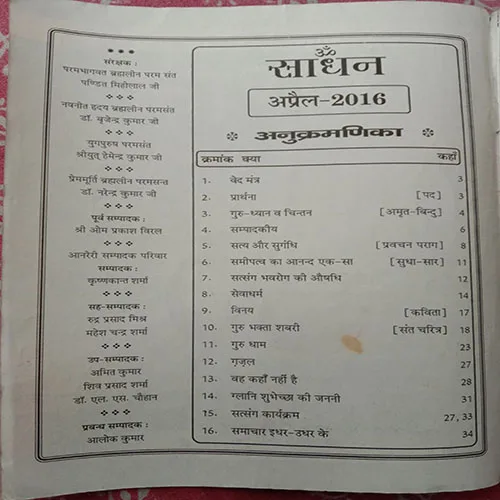 ***
संरक्षक :
परमभागवत ब्रह्मलीन परम संत
पण्डित मिहीलाल जी
❖ ❖ ❖
नवनीत हृदय ब्रह्मलीन परमसंत
डॉ. बृजेन्द्र कुमार जी
❖ ❖ ❖
युगपुरुष परमसंत
श्रीयुत् हेमेन्द्र कुमार जी
❖ ❖ ❖
प्रेममूर्ति ब्रह्मलीन परमसन्त
डॉ. नरेन्द्र कुमार जी
❖ ❖ ❖
पूर्व सम्पादक :
श्री ओम प्रकाश विरल
❖ ❖ ❖
आनरेरी सम्पादक परिवार
सम्पादक :
कृष्णकान्त शर्मा
❖ ❖ ❖
सह-सम्पादक :
रुद्र प्रसाद मिश्र
महेश चन्द्र शर्मा
❖ ❖ ❖
उप-सम्पादक :
अमित कुमार
शिव प्रसाद शर्मा
डॉ. एल. एस. चौहान
❖ ❖ ❖
प्रबन्ध सम्पादक :
आलोक कुमार
ॐ
साधन
अप्रैल-2016
❋ अनुक्रमणिका ❋
क्रमांक क्या कहाँ
1. वेद मंत्र 3
2. प्रार्थना [पद] 3
3. गुरु-ध्यान व चिन्तन [अमृत-बिन्दु] 4
4. सम्पादकीय 6
5. सत्य और सुगंधि [प्रवचन पराग] 8
6. समीपत्व का आनन्द एक-सा [सुधा-सार] 11
7. सत्संग भवरोग की औषधि 12
8. सेवाधर्म 14
9. विनय [कविता] 17
10. गुरु भक्ता शबरी [संत चरित्र] 18
11. गुरु धाम 23
12. गज़ल 27
13. वह कहाँ नहीं है 28
14. ग्लानि शुभेच्छा की जननी 31
15. सत्संग कार्यक्रम 27, 33
16. समाचार इधर-उधर के 34